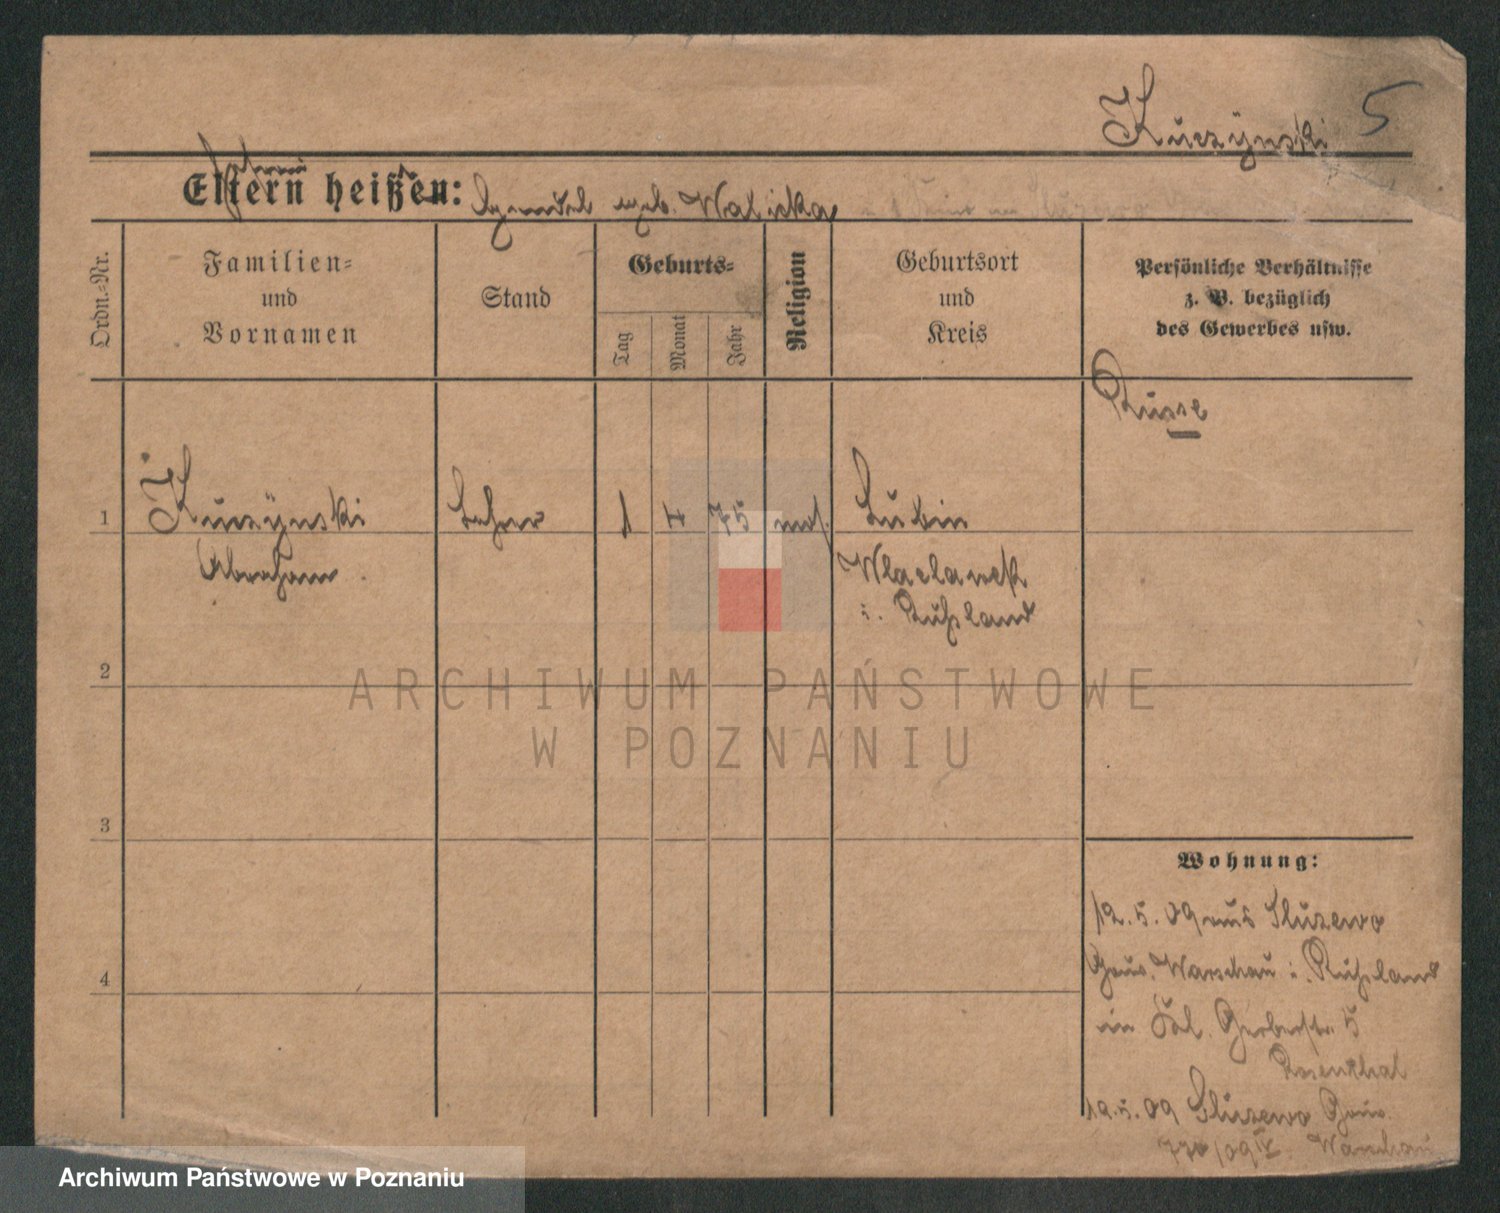 Kuczÿnski 5
Eltern heißen: geb. Walicka
Ordn.-Nr.
Familien-
und
Vornamen
Stand
Geburts-
Tag
Monat
Jahr
Religion
Geburtsort
und
Kreis
Persönliche Verhältnisse
z. B. bezüglich
des Gewerbes usw.
Russe
1 Kuczÿnski Lehrer 1 4 75 mos. Lubin
Abraham Wlaclaweck
i. Rußland
2
3
4
Wohnung:
12.5.09 aus Sluzewo
Gouv. Warschau i. Rußland
in Gerberstr. 5
Rosenthal
19.5.09 Sluzewo Gouv.
Warschau
ARCHIWUM PAŃSTWOWE
W POZNANIU
Archiwum Państwowe w Poznaniu